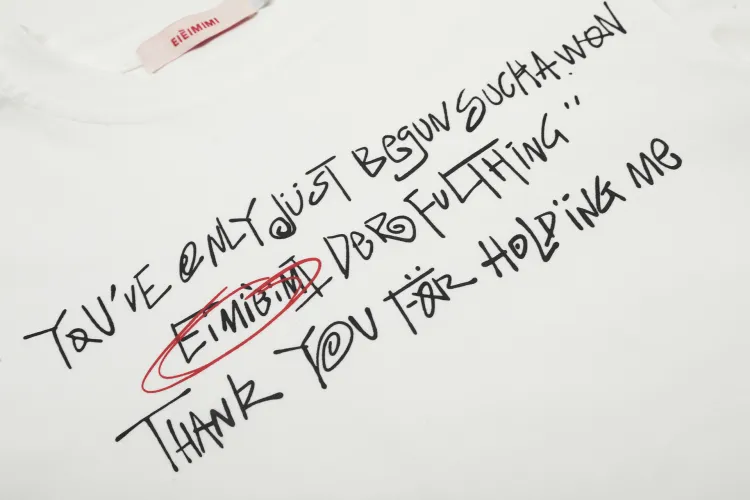 EIĖIMIMI
YOU'VE ONLY JÜST BEGUN SUCHA.WON
EIMIBIMI DERFULTHING"
THANK YOU FÖR HOLD'ING ME